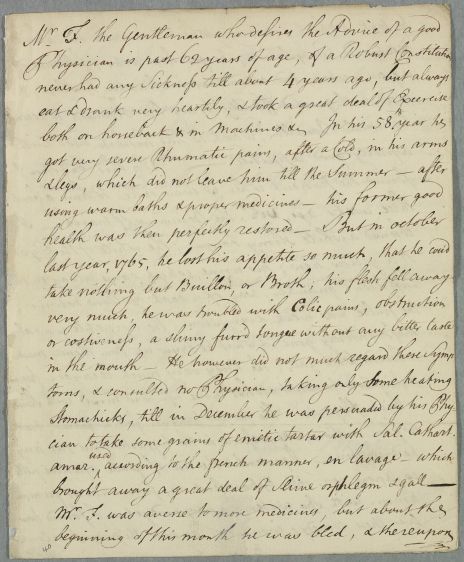 Mr F. the Gentleman who desires the Advice of a good
Physician is past 62 years of age, & of a Robust Constitution
never had any Sickness till about 4 years ago, but always
eat & drank very heartily, & took a great deal of Exercise
both on horseback & in Machines &c. In his 58th year he
got very severe Rhumatic pains, after a Cold, in his arms
& legs, which did not leave him till the Summer — after
using warm baths & proper medicines — his former good
health was then perfectly restored — But in october
last year, 1765, he lost his appetite so much, that he could
take nothing but Buillon, or Broth; his flesh fell away
very much, he was troubled with Colic pains, obstruction
or costiveness, a slimy furrd tongue without any bitter taste
in the mouth — He however did not much regard these Symp
toms, & consulted no Physician, taking only some heating
Stomachicks, till in December he was persuaded by his Phy-
cian to take some grains of emetic tartar with Sal. Cathart.
amar. used according to the french manner, en lavage — which
brought away a great deal of Slime or phlegm & gall —
Mr F. was averse to more medicines, but about the
beginning of this month he was bled, & thereupon
40